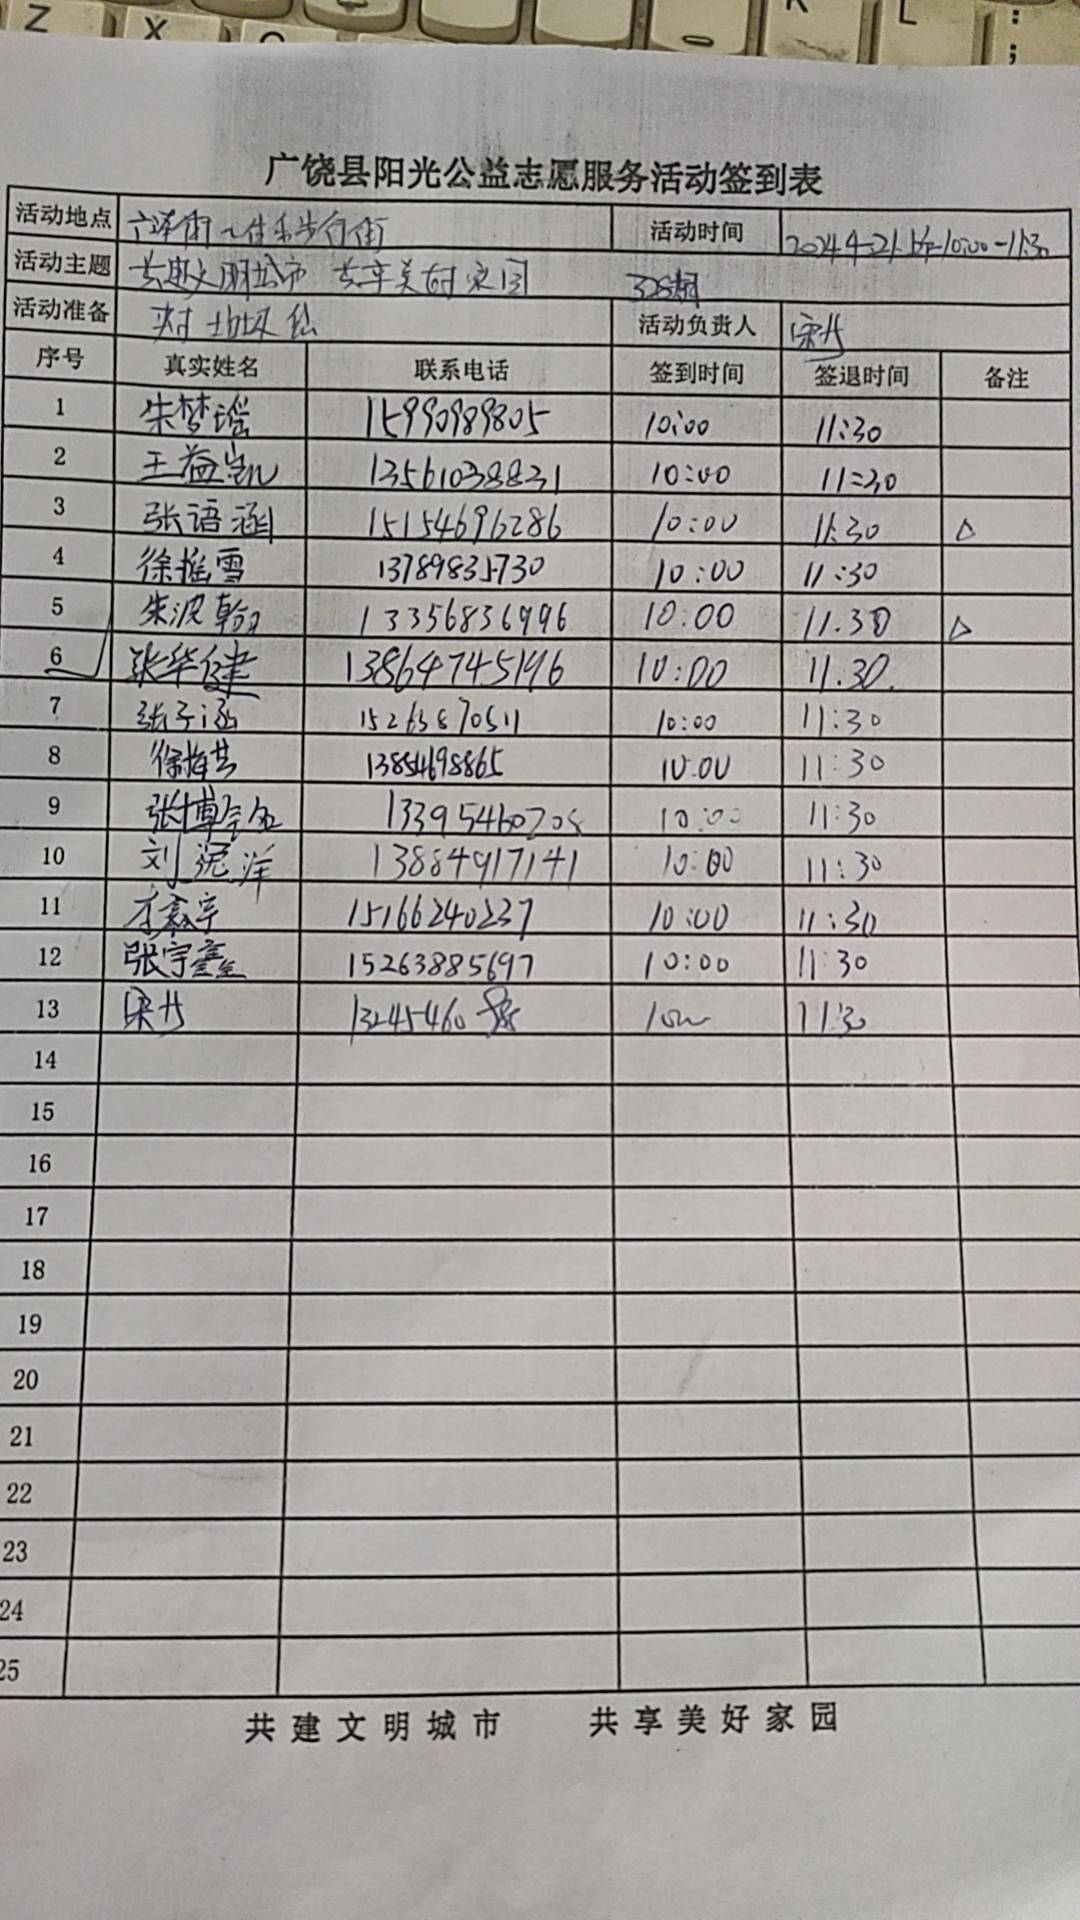 Z X K L : ;
广饶县阳光公益志愿服务活动签到表
活动地点 活动时间 2024.4.21 10:00-11:30
活动主题 共建文明城市 共享美好家园
活动准备 活动负责人
序号 真实姓名 联系电话 签到时间 签退时间 备注
1 朱梦瑶 15990989805 10:00 11:30
2 王益凯 13561038831 10:00 11:30
3 张语涵 15154696286 10:00 11:30 △
4 徐摇雪 13789835730 10:00 11:30
5 朱波翰 13356836996 10:00 11.30 △
6 张华健 13864745196 10:00 11.30.
7 张子涵 15263870511 10:00 11:30
8 13854698865 10:00 11:30
9 张博 10:00 11:30
10 刘 洋 13884917141 10:00 11:30
11 15166240237 10:00 11:30
12 张宇鑫 15263885697 10:00 11:30
13 11:30
14
15
16
17
18
19
20
21
22
23
24
25
共建文明城市 共享美好家园